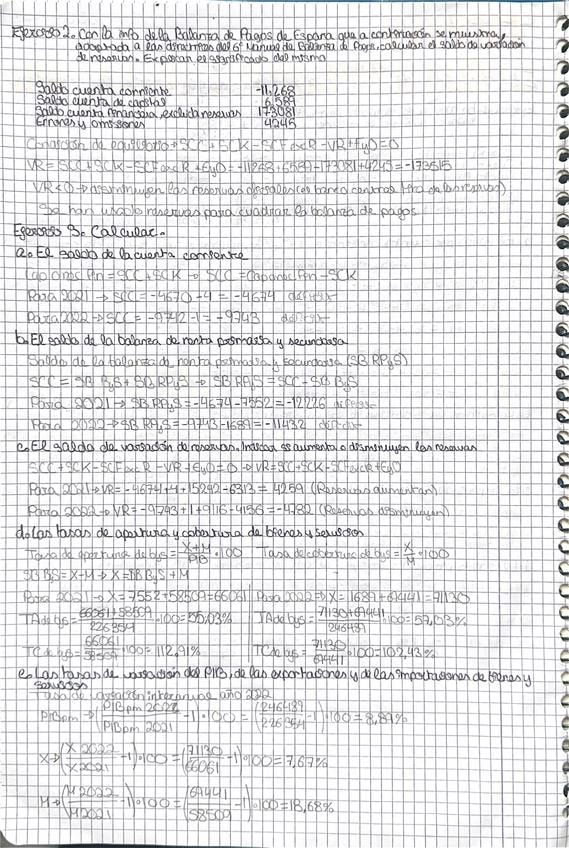 Ejercicio 2. Con la info de la Balanza de Pagos de España que a continuación se muestra y
adaptada a las directrices del 6º Manual de Balanza de Pagos, calcular el saldo de variación
de reservas. Explicar el significado del mismo
Saldo cuenta corriente -11,268
Saldo cuenta de capital 6,589
Saldo cuenta financiera, excluida reservas 173081
Errores y omisiones 4245
Condición de equilibrio → SCC + SCK - SCFexcR - VR + EyO = 0
VR = SCC + SCK - SCFexcR + EyO = -11268 + 6589 - 173081 + 4245 = -173515
VR<0 → disminuyen las reservas oficiales (el banco central tira de las reservas)
Se han usado reservas para cuadrar la balanza de pagos
Ejercicio 3. Calcular.
a. El saldo de la cuenta corriente
Cap o nec fin = SCC + SCK → SCC = Cap o nec fin - SCK
Para 2021 → SCC = -4670 - 4 = -4674 déficit
Para 2022 → SCC = -9742 - 1 = -9743 déficit
b. El saldo de la balanza de renta primaria y secundaria
Saldo de la balanza de renta primaria y secundaria (SB RPyS)
SCC = SB ByS + SB RPyS → SB RPyS = SCC - SB ByS
Para 2021 → SB RPyS = -4674 - 7552 = -12226 déficit
Para 2022 → SB RPyS = -9743 - 1689 = -11432 déficit
c. El saldo de variación de reservas. Indicar si aumenta o disminuyen las reservas
SCC + SCK - SCFexcR - VR + EyO = 0 → VR = SCC + SCK - SCFexcR + EyO
Para 2021 → VR = -4674 + 4 + 15242 - 6313 = 4259 (Reservas aumentan)
Para 2022 → VR = -9743 + 1 + 9116 - 4156 = -4782 (Reservas disminuyen)
d. Las tasas de apertura y cobertura de bienes y servicios
Tasa de apertura de bys = X+M/PIB · 100 Tasa de cobertura de bys = X/M · 100
SB BS = X - M → X = SB ByS + M
Para 2021 → X = 7552 + 58509 = 66061 Para 2022 → X = 1689 + 69441 = 71130
TA de bys = 66061+58509/226354 · 100 = 55,03% TA de bys = 71130+69441/246489 · 100 = 57,03%
TC de bys = 66061/58509 · 100 = 112,91% TC de bys = 71130/69441 · 100 = 102,43%
e. Las tasas de variación del PIB, de las exportaciones y de las importaciones de bienes y
servicios
Tasa de variación interanual año 2022
PIBpm → (PIBpm 2022/PIBpm 2021 - 1) · 100 = (246489/226354 - 1) · 100 = 8,89%
X → (X 2022/X 2021 - 1) · 100 = (71130/66061 - 1) · 100 = 7,67%
M → (M 2022/M 2021 - 1) · 100 = (69441/58509 - 1) · 100 = 18,68%